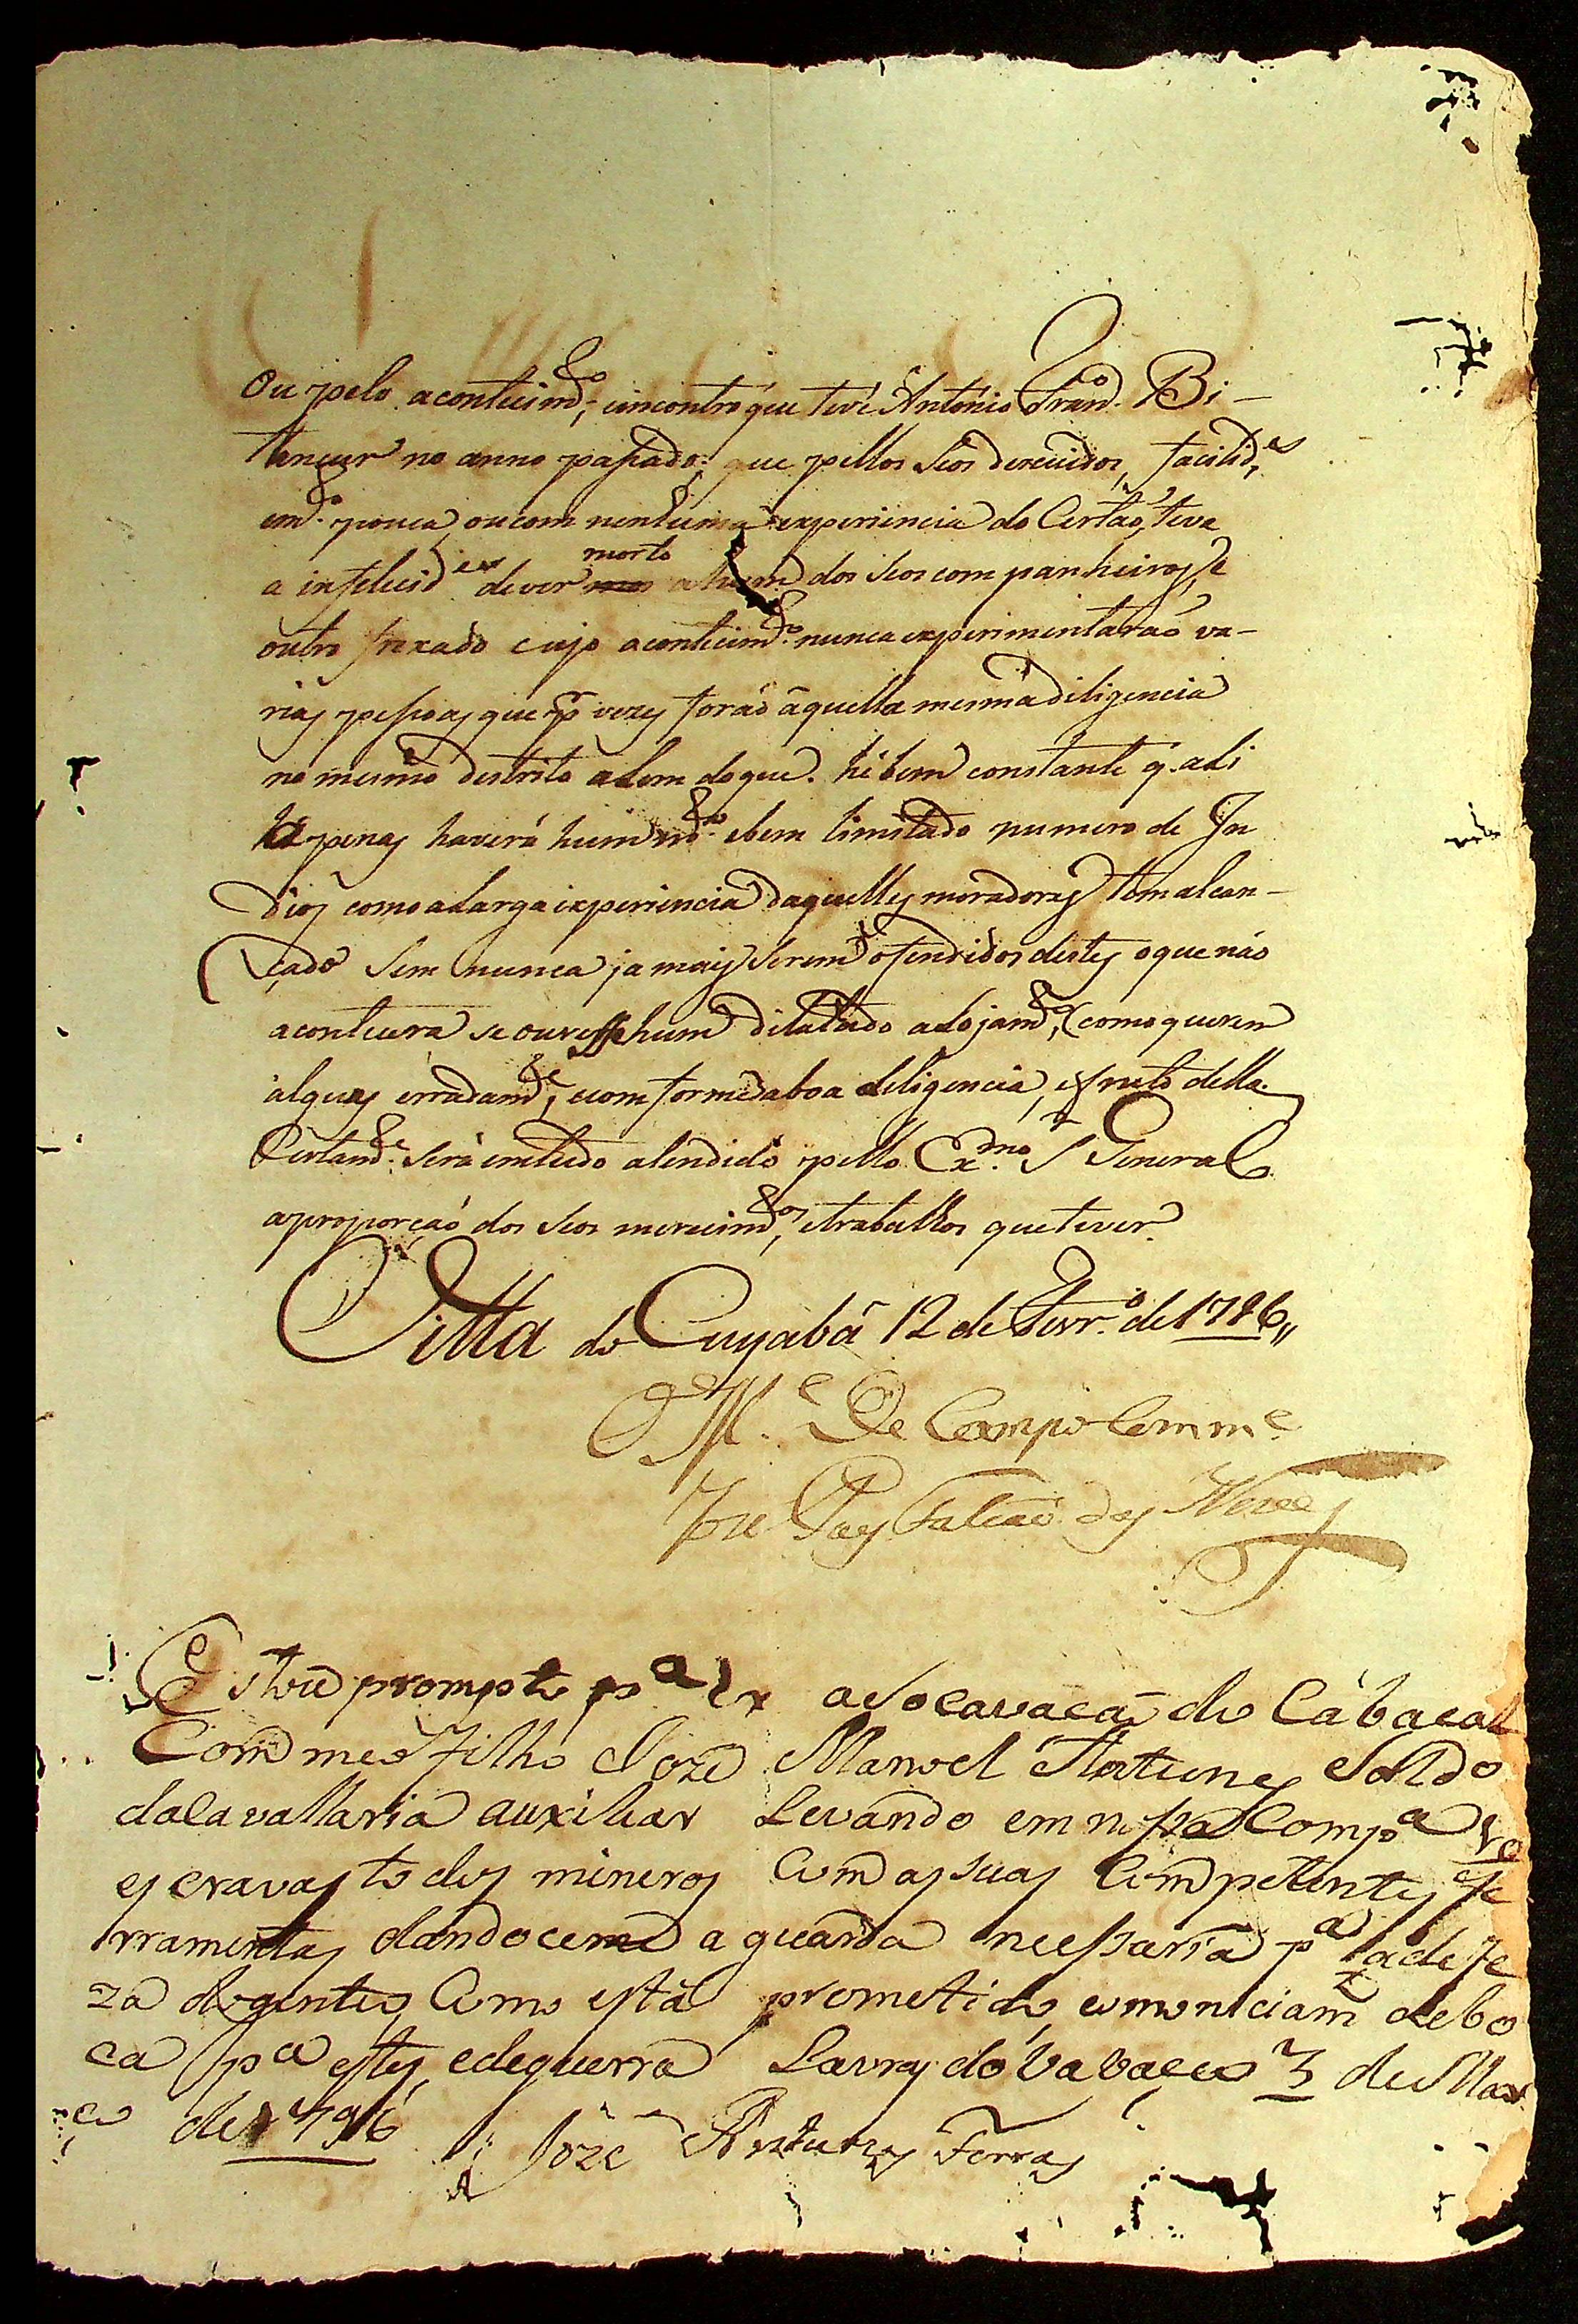 Ou pelo acontecim.to, eincontro que teve Antonio Fran.co Bi-
tancur no anno passado: que pellos Seos descuidos, facilid.es
em.to pouca, oucom nenhuma experiencia do Certaõ, teve
a infelicid.e de ver morto ahum dos Seos companheiros, e
outro frexado cujo acontecim.to nunca experimentaraõ va-
rias pessoas que p.r vezes foraõ aquella mesma diligencia
no mesmo destrito alem doque. hé bem constante q. ali
apenas haverá hum m.to ebem limitado numero de In
dios como alarga experiencia daquelles moradores tem alcan-
çado Sem nunca jamais Serem ofendidos destes oque náo
acontecera se ouvesse hum dilatado alojam.to, (como querem
alguns erradam.te, econforme aboa deligencia, efruto della.
Certam.te Será emtudo atendido pello Ex.mo S.r General
aproporçaõ dos Seos merecim.tos, etrabalhos que tever.
Villa do Cuyabá 12 de Fevr.o de 1796,,
O M.e De Campo Comm.e
Joze Paes Falcaõ das Neves
Estou prompto p.a ir asocavacaõ do Cabacal
Com meo filho Joze Manoel Antunes Soldo
dacavallaria auxiliar Levando em nossa Comp.a
escravos todos mineros Com as suas Competentes fe
rramentas dandoceme a guarda nessaria p.a adefe
za dogentio, Como está prometido, comoniciam debo
ca p.a estes, edeguerra Lavras do 3 de Mar
co de 1796
Joze Antunes Ferras